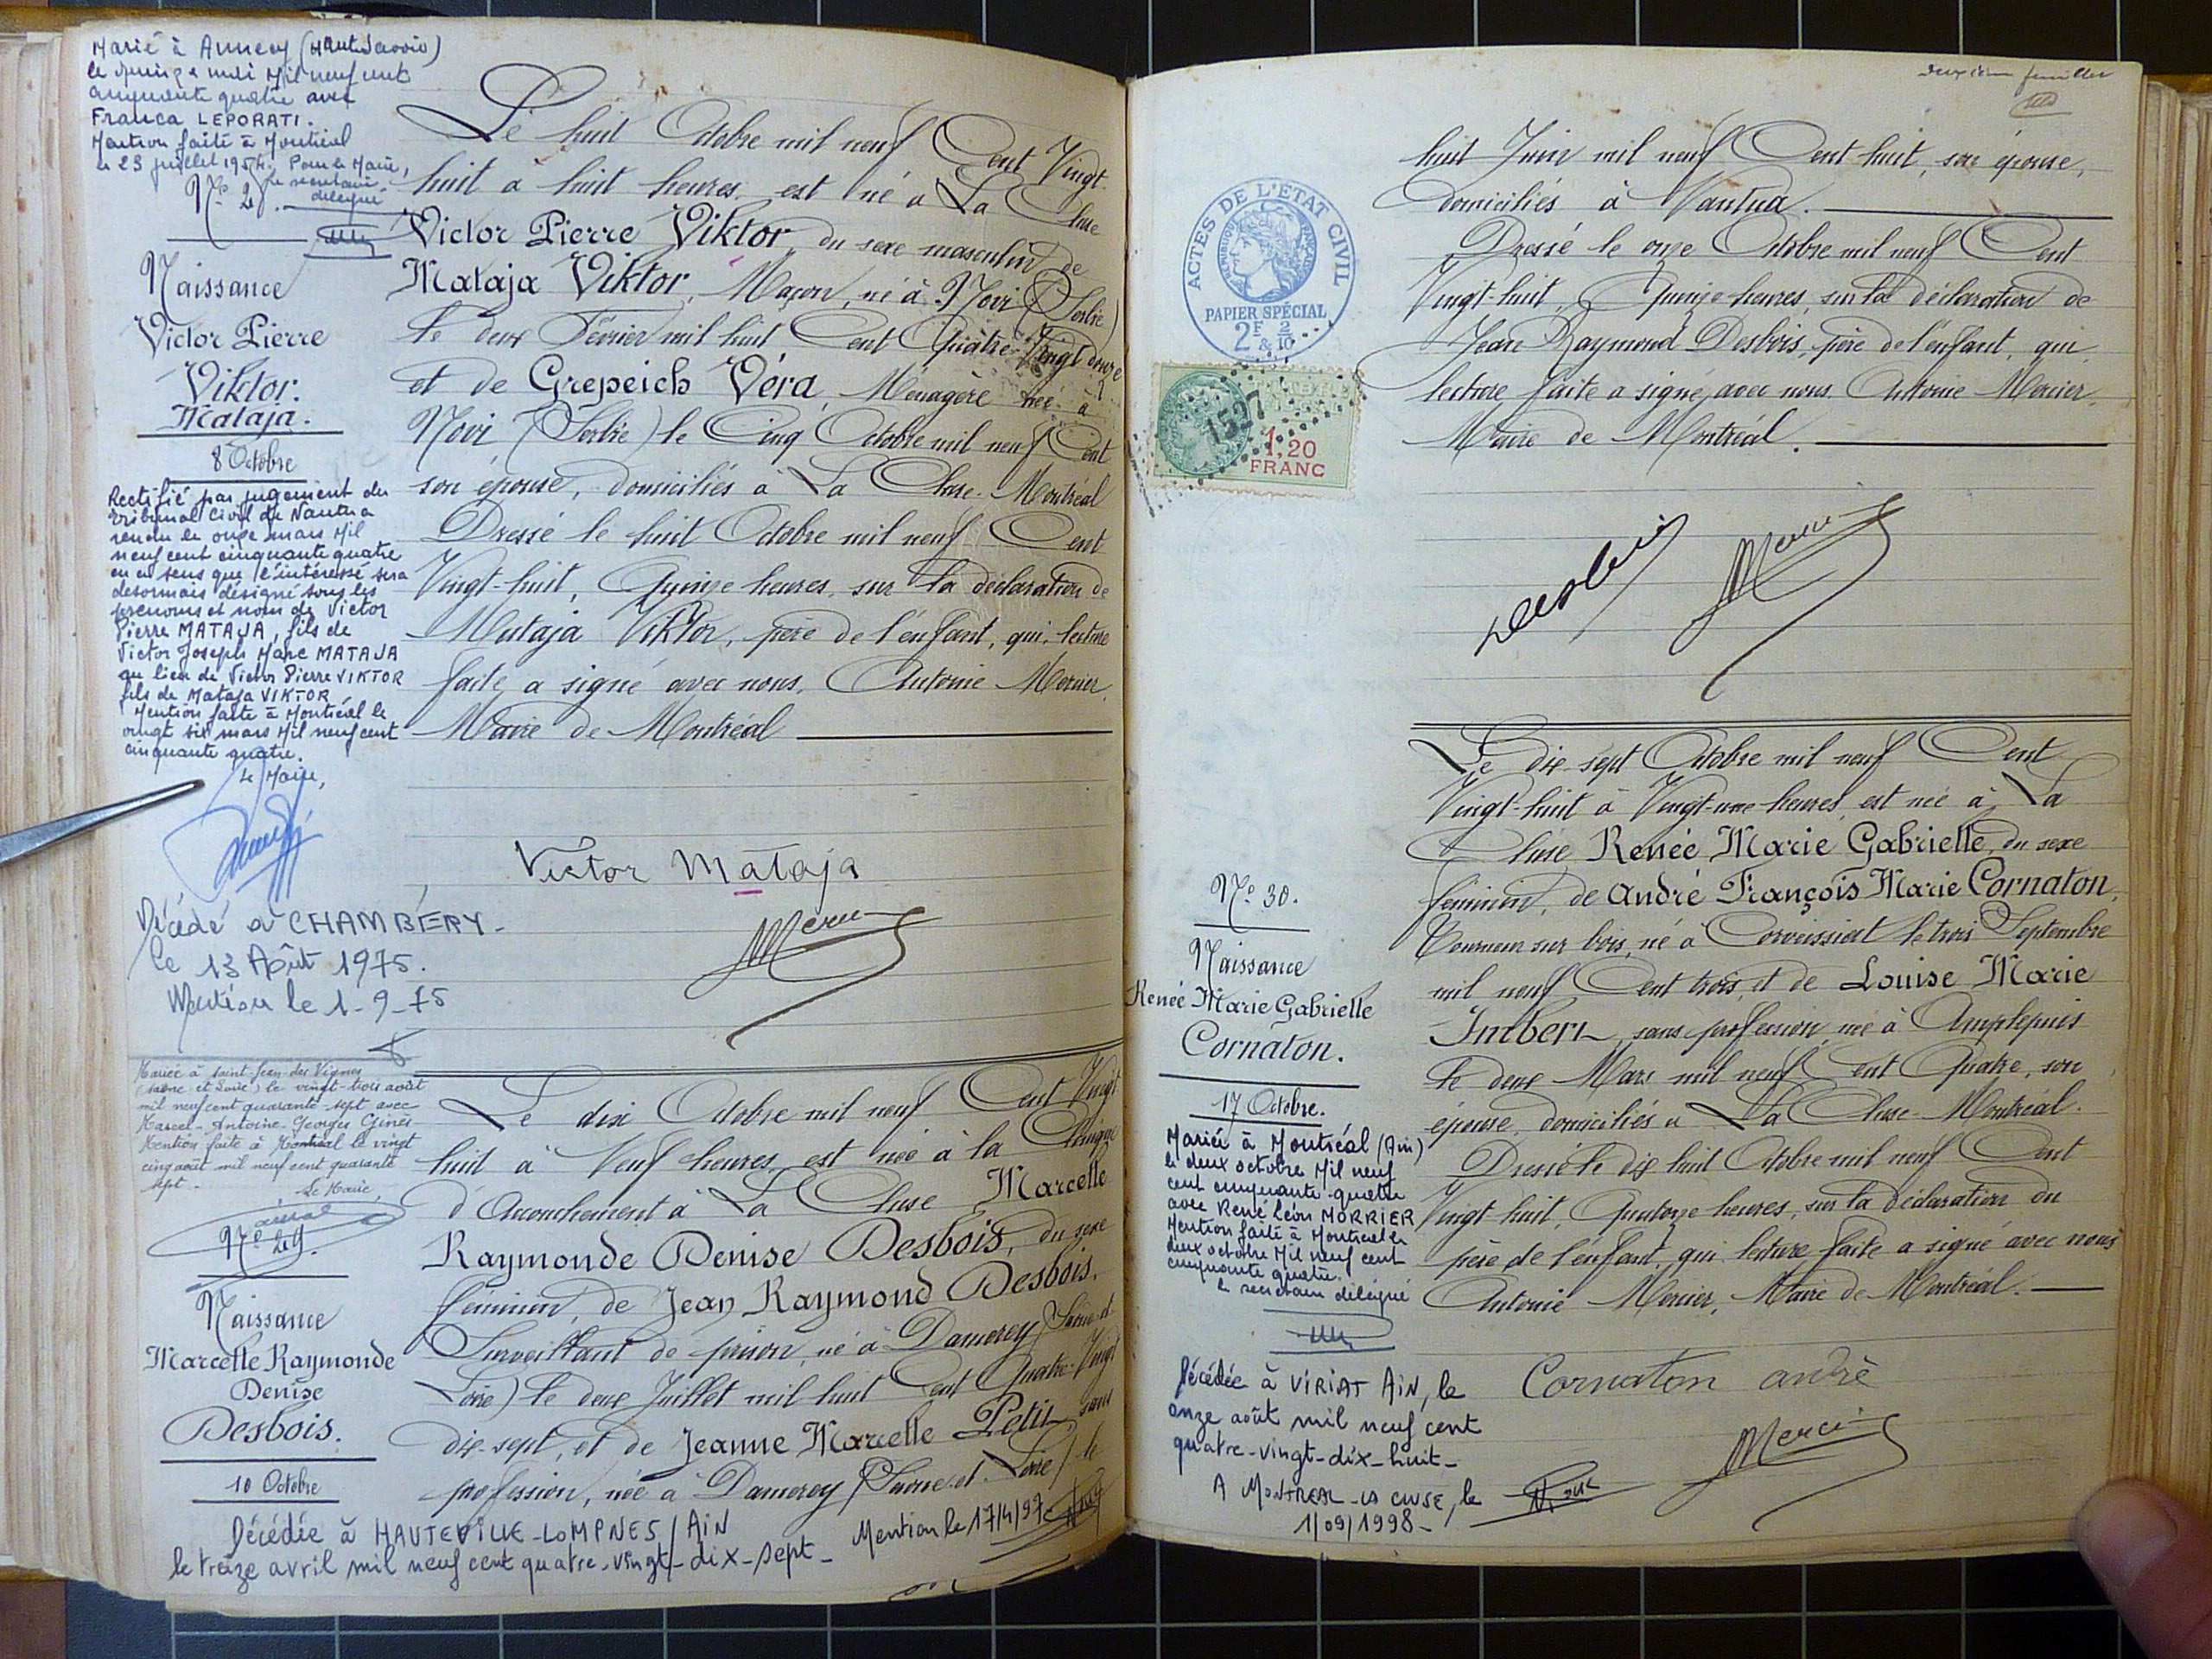 Marié à Annecy (Haute Savoie)
le quinze mai Mil neuf cent
cinquante quatre avec
Franca LEPORATI.
Mention faite à Montréal
le 23 juillet 1954. Pour le Maire,
le secrétaire
délégué
N° 28.
Naissance
Victor Pierre
Viktor.
Mataja.
8 Octobre
Rectifié par jugement du
Tribunal Civil de Nantua
rendu le onze mars Mil
neuf cent cinquante quatre
en ce sens que l'intéressé sera
désormais désigné sous les
prénoms et nom de Victor
Pierre MATAJA, fils de
Victor Joseph Marc MATAJA
au lieu de Victor Pierre VIKTOR
fils de Mataja VIKTOR
Mention faite à Montréal le
vingt six mars Mil neuf cent
cinquante quatre.
Le Maire,
Décédé à CHAMBÉRY-
le 13 Août 1975.
Mention le 1-9-75
Le huit Octobre mil neuf Cent Vingt-
huit à huit heures, est né à La Cluse
Victor Pierre Viktor, du sexe masculin de
Mataja Viktor, Maçon, né à Novi (Serbie)
le deux Février mil huit Cent Quatre-Vingt douze
et de Grepeich Véra, Ménagère née à
Novi (Serbie) le Cinq Octobre mil neuf Cent
son épouse, domiciliés à La Cluse-Montréal
Dressé le huit Octobre mil neuf Cent
Vingt-huit, Quinze heures, sur la déclaration de
Mataja Viktor, père de l'enfant, qui, lecture
faite, a signé avec nous, Antoine Mercier,
Maire de Montréal
Victor Mataja
Mercier
Mariée à Saint-Jean-des-Vignes
(Saône et Loire) le vingt-trois août
mil neuf cent quarante sept avec
Marcel-Antoine-Georges Gines
Mention faite à Montréal le vingt
cinq août mil neuf cent quarante
sept.-
Le Maire,
N° 29.
Naissance
Marcelle Raymonde
Denise
Desbois.
10 Octobre
Le dix Octobre mil neuf Cent Vingt
huit à Neuf heures, est née à la Clinique
d'Accouchement à La Cluse Marcelle
Raymonde Denise Desbois, du sexe
féminin, de Jean Raymond Desbois.
Surveillant de prison, né à Damerey (Saône-et-
Loire) le deux Juillet mil huit Cent Quatre-Vingt
dix-sept, et de Jeanne Marcelle Petit, sans
profession, née à Damerey (Saône-et-Loire) le
Décédée à HAUTEVILLE-LOMPNES / AIN
le treize avril mil neuf cent quatre-vingt-dix-sept-
Mention le 17/4/97-
Deuxième feuillet
ACTES DE L'ETAT CIVIL
REPUBLIQUE FRANÇAISE
PAPIER SPÉCIAL
2F & 2/10
1527
1,20
FRANC
huit Juin mil neuf Cent huit, son épouse,
domiciliés à Nantua.
Dressé le onze Octobre mil neuf Cent
Vingt-huit, Quinze heures, sur la déclaration de
Jean Raymond Desbois, père de l'enfant, qui,
lecture faite a signé avec nous, Antoine Mercier,
Maire de Montréal.
Desbois
Mercier
N° 30.
Naissance
Renée Marie Gabrielle
Cornaton.
17 Octobre.
Mariée à Montréal (Ain)
le deux octobre Mil neuf
cent cinquante-quatre
avec René Léon MORRIER
Mention faite à Montréal le
deux octobre Mil neuf cent
cinquante quatre.
Le secrétaire délégué
Décédée à VIRIAT AIN, le
onze août mil neuf cent
quatre-vingt-dix-huit-
A MONTREAL-LA CLUSE, le
1/09/1998-
Le dix-sept Octobre mil neuf Cent
Vingt-huit à Vingt-une heures, est née à La
Cluse Renée Marie Gabrielle, du sexe
féminin, de André François Marie Cornaton,
Tourneur sur bois, né à Corveissiat le trois Septembre
mil neuf Cent trois, et de Louise Marie
Imbert, sans profession, née à Amplepuis
le deux Mars mil neuf Cent Quatre, son
épouse, domiciliés à La Cluse-Montréal.
Dressé le dix huit Octobre mil neuf Cent
Vingt-huit, Quatorze heures, sur la déclaration du
père de l'enfant, qui, lecture faite a signé avec nous
Antoine Mercier, Maire de Montréal.
Cornaton andré
Mercier